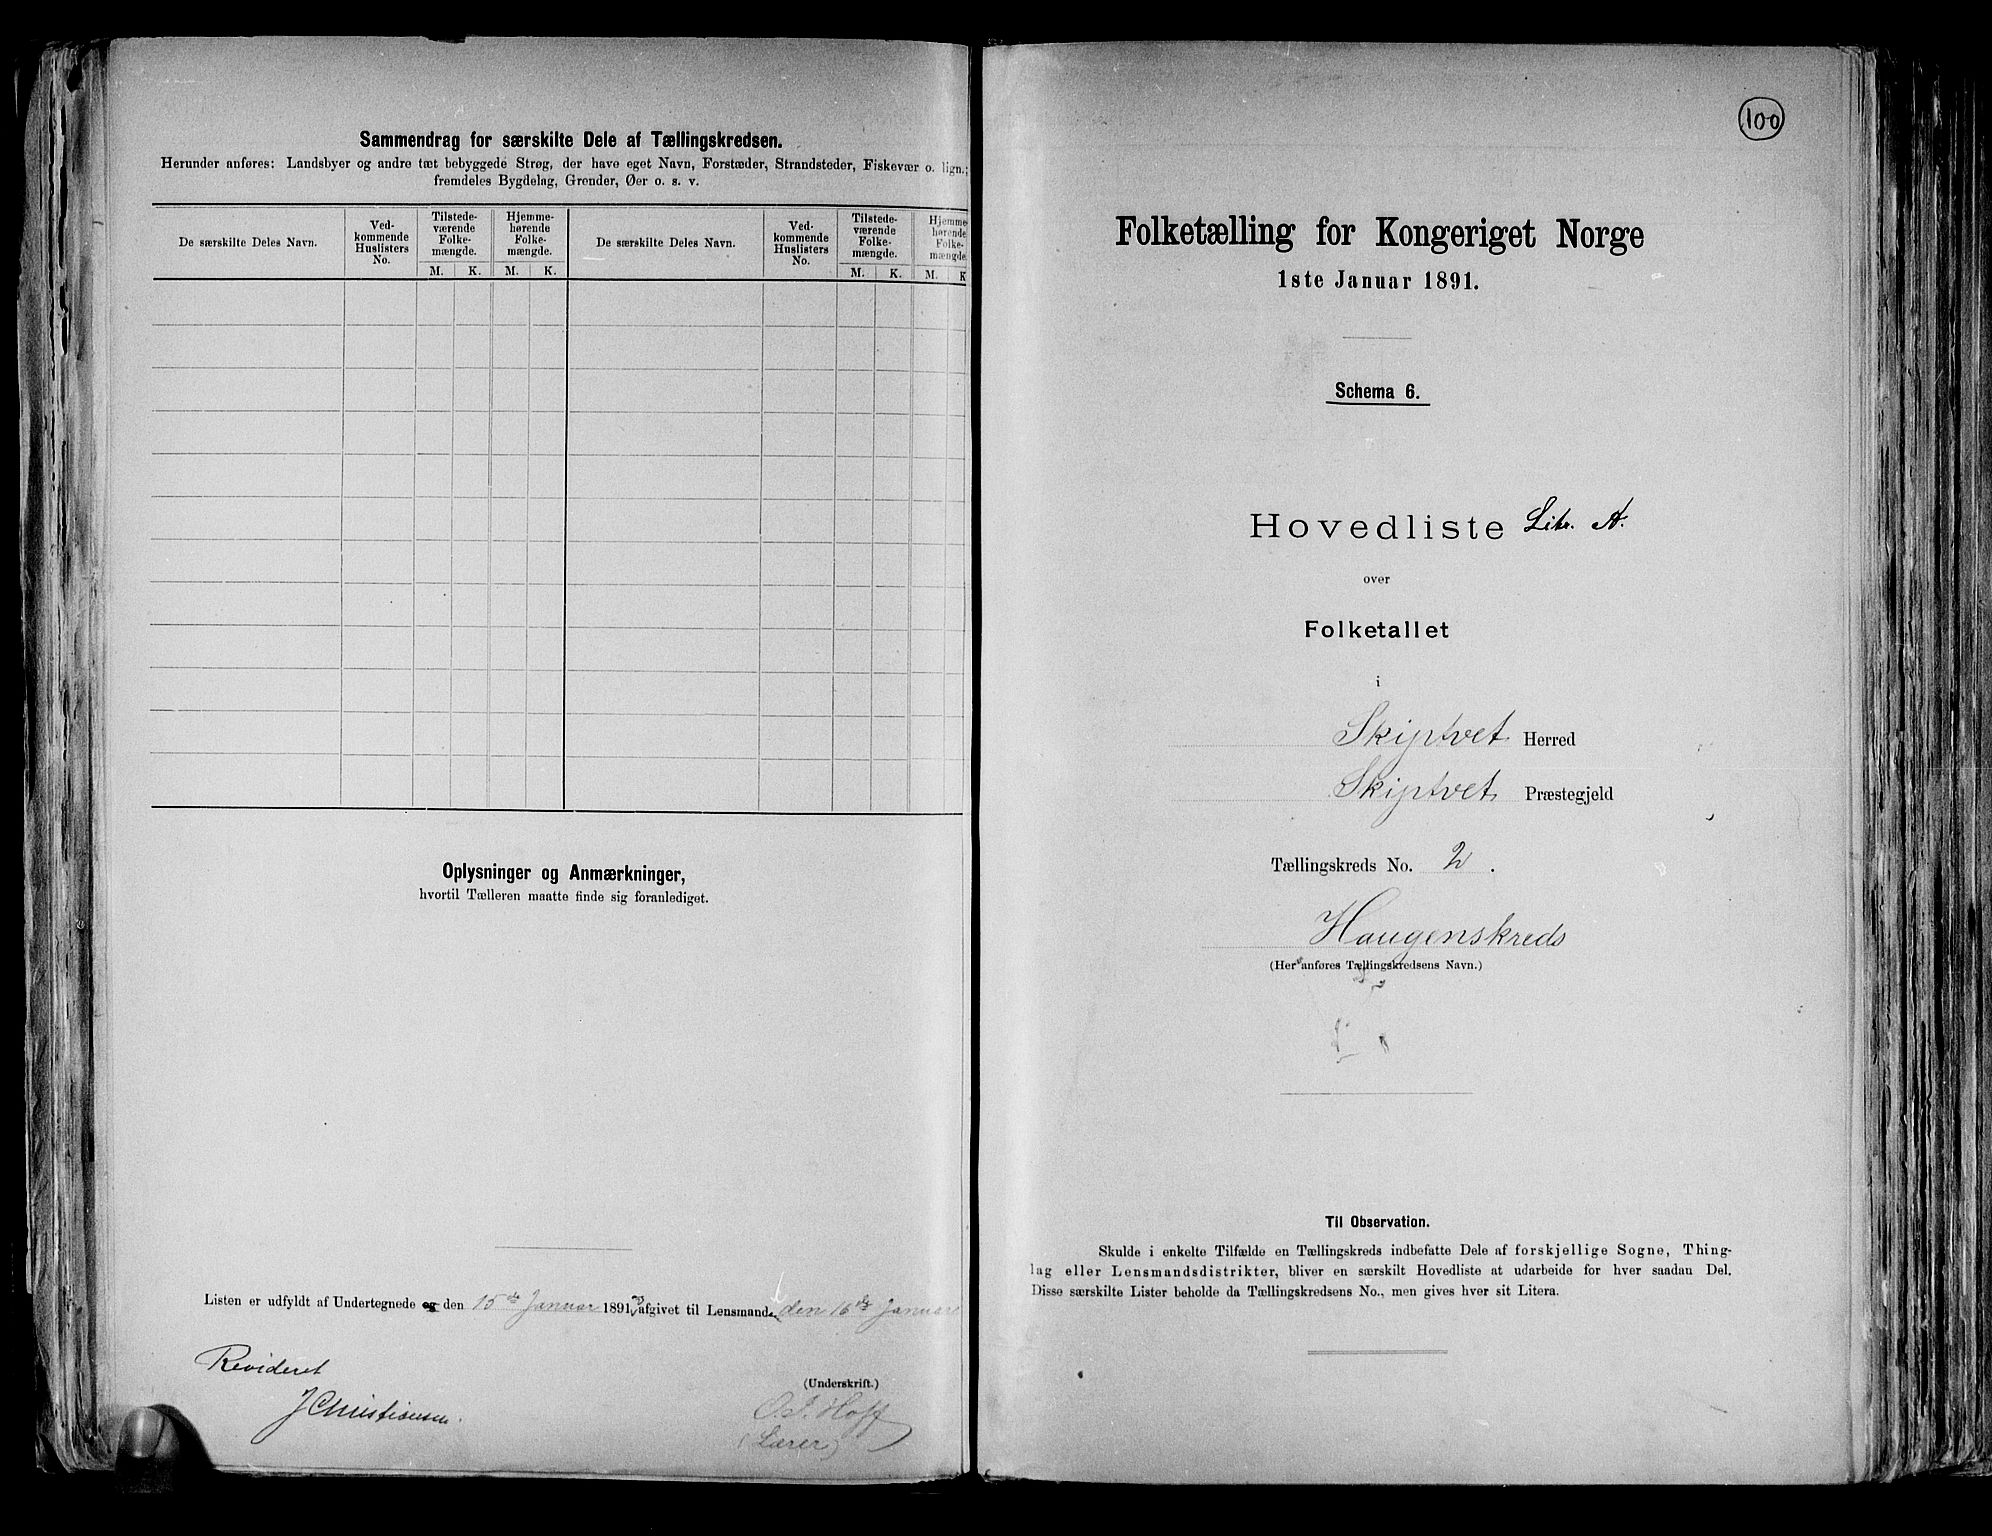 Sammendrag for særskilte Dele af Tællingskredsen.
Herunder anføres: Landsbyer og andre tæt bebyggede Strøg, der have eget Navn, Forstæder, Strandsteder, Fiskevær o. lign.;
fremdeles Bygdelag, Grender, Øer o. s. v.
De særskilte Deles Navn.
Ved-
kommende
Huslisters
No.
Tilstede-
værende
Folke-
mængde.
M. K.
Hjemme-
hørende
Folke-
mængde.
M. K.
De særskilte Deles Navn.
Ved-
kommende
Huslisters
No.
Tilstede-
værende
Folke-
mængde.
M. K.
Hjemme
hørende
Folke-
mængde
M. K
Oplysninger og Anmærkninger,
hvortil Tælleren maatte finde sig foranlediget.
Listen er udfyldt af Undertegnede og den 15de Januar 1891, afgivet til Lensmand den 16de Januar
Revideret
J Christensen.
(Underskrift.)
Hoff
(Lærer)
100
Folketælling for Kongeriget Norge
1ste Januar 1891.
Schema 6.
Hovedliste Litr. A.
over
Folketallet
i
Skiptvet Herred
Skiptvet Præstegjeld
Tællingskreds No. 2.
Haugenskreds
(Her anføres Tællingskredsens Navn.)
Til Observation.
Skulde i enkelte Tilfælde en Tællingskreds indbefatte Dele af forskjellige Sogne, Thing-
lag eller Lensmandsdistrikter, bliver en særskilt Hovedliste at udarbeide for hver saadan Del.
Disse særskilte Lister beholde da Tællingskredsens No., men gives hver sit Litera.